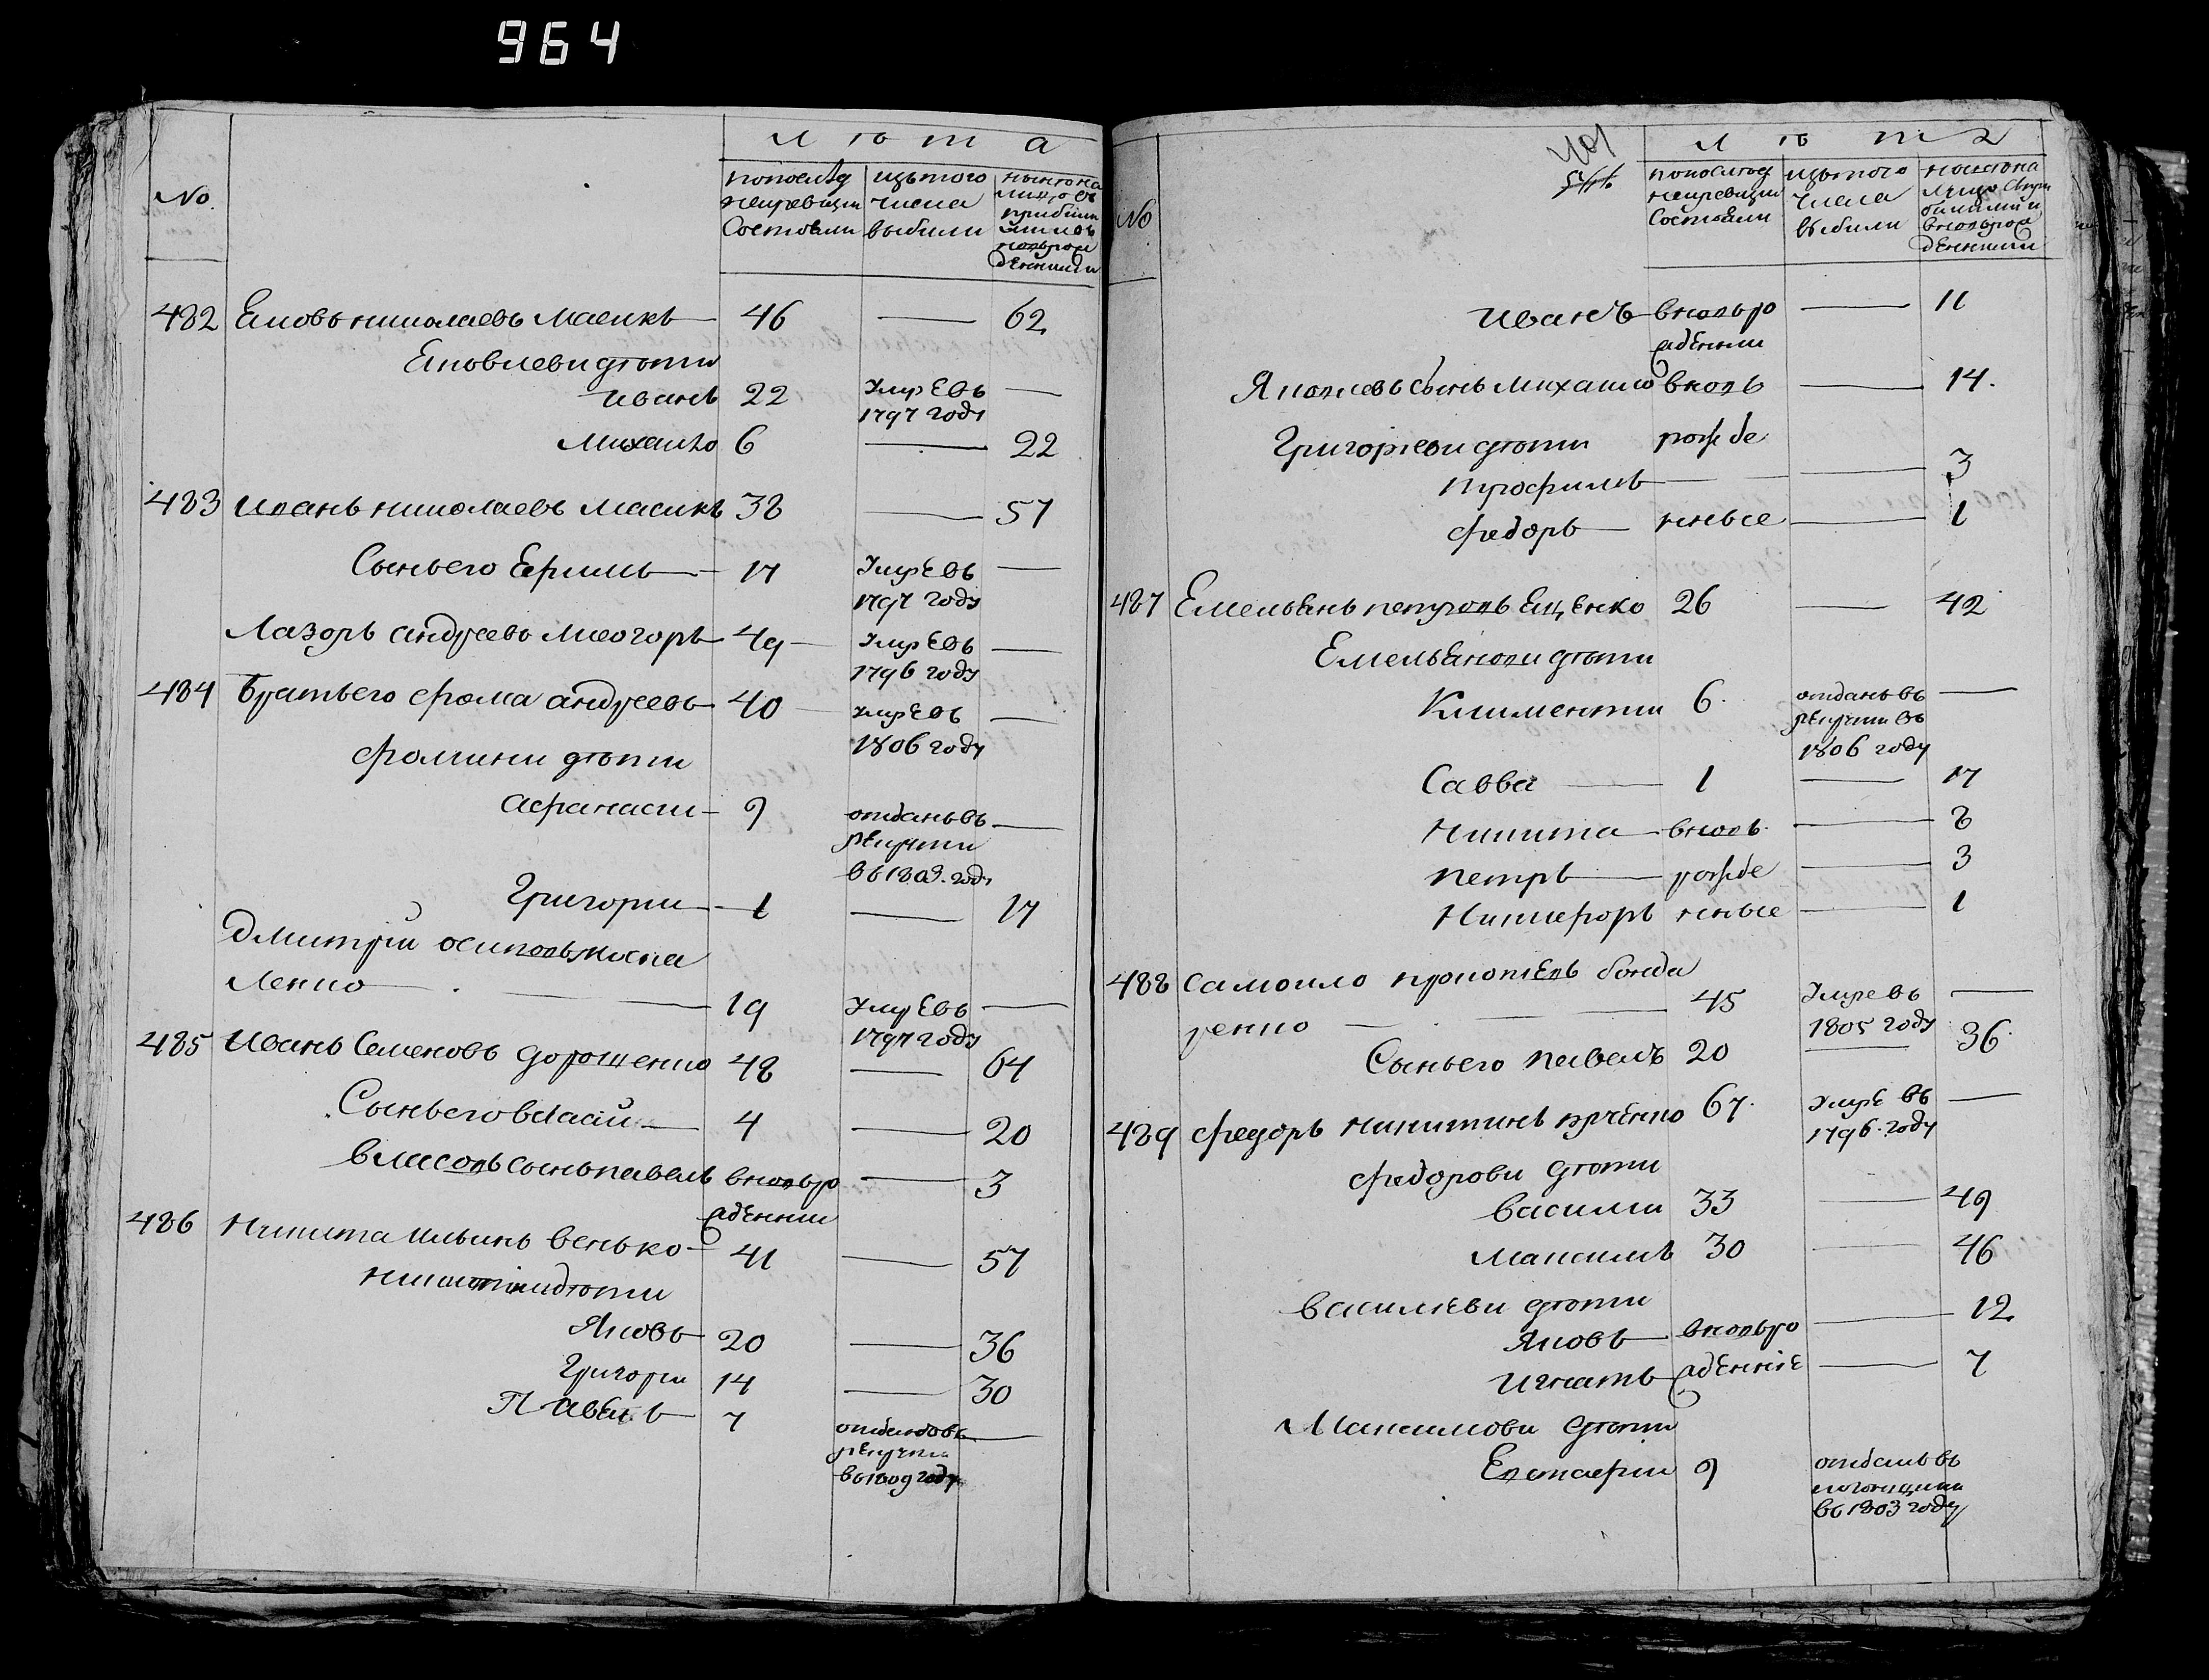 964
лѣта
No.
попослѣд
ней ревизiи
Состояли
изътого
числа
выбыли
нынѣ на
лицо съ
прибыли
ми и съ
новоро
денними
482 Еков николаевъ Масикъ 46 — 62
Ековлеви дѣти
иванъ 22 Умре въ —
1797 году
михаило 6 — 22
483 иванъ николаевъ масикъ 38 — 57
Сынъ его Ефимъ 17 Умре въ —
1797 году
Лазоръ андреевъ миогоръ 49 Умре въ —
1796 году
484 Братъ его фома андреевъ 40 Умре въ —
1806 году
фомини дѣти
афанаси 9 отданъ въ —
рекрути
въ 1803 году
Григори 1 — 17
дмитрiи осиповъ
ленко 19 Умре въ —
1797 году
485 Иванъ Семеновъ дорошенко 48 — 64
Сынъ его власий 4 — 20
власовъ сынъ павелъ вновь ро 3
аденни
486 Никита ильинъ венько 41 — 57
никитини дѣти
Яковъ 20 — 36
Григори 14 — 30
Павелъ 7 отданъ въ —
рекрути
въ 1809 году
401
лѣта
No
попослѣд
ней ревизiи
Состояли
изътого
числа
выбили
ныне на
лицо
вновьрож
денними
иванъ вновьро — 11
аденни
Яковлевъ сынъ михаило вновь — 14.
Григориеви дѣти рожде
трофимъ — 3
федоръ нные — 1
487 Емельянъ петровъ Ещенко 26 — 42
Емельянови дѣти
Климентии 6. отданъ въ —
рекрути въ
1806 году
Савва 1 — 17
никита вновь — 8
петръ рожде — 3
никифоръ нные — 1
488 самоило прокопiевъ бонда
ренко 45 Умре въ —
1805 году
Сынъ его павелъ 20 — 36.
489 федоръ никитинъ 67. Умре въ —
1796. году
федорови дѣти
василии 33 — 49
максимъ 30 — 46
василиеви дѣти
Яковъ вновьро — 12
игнатъ аденнiе — 7
Максимови дѣти
Евстафии 9 отданъ въ
въ 1803 году